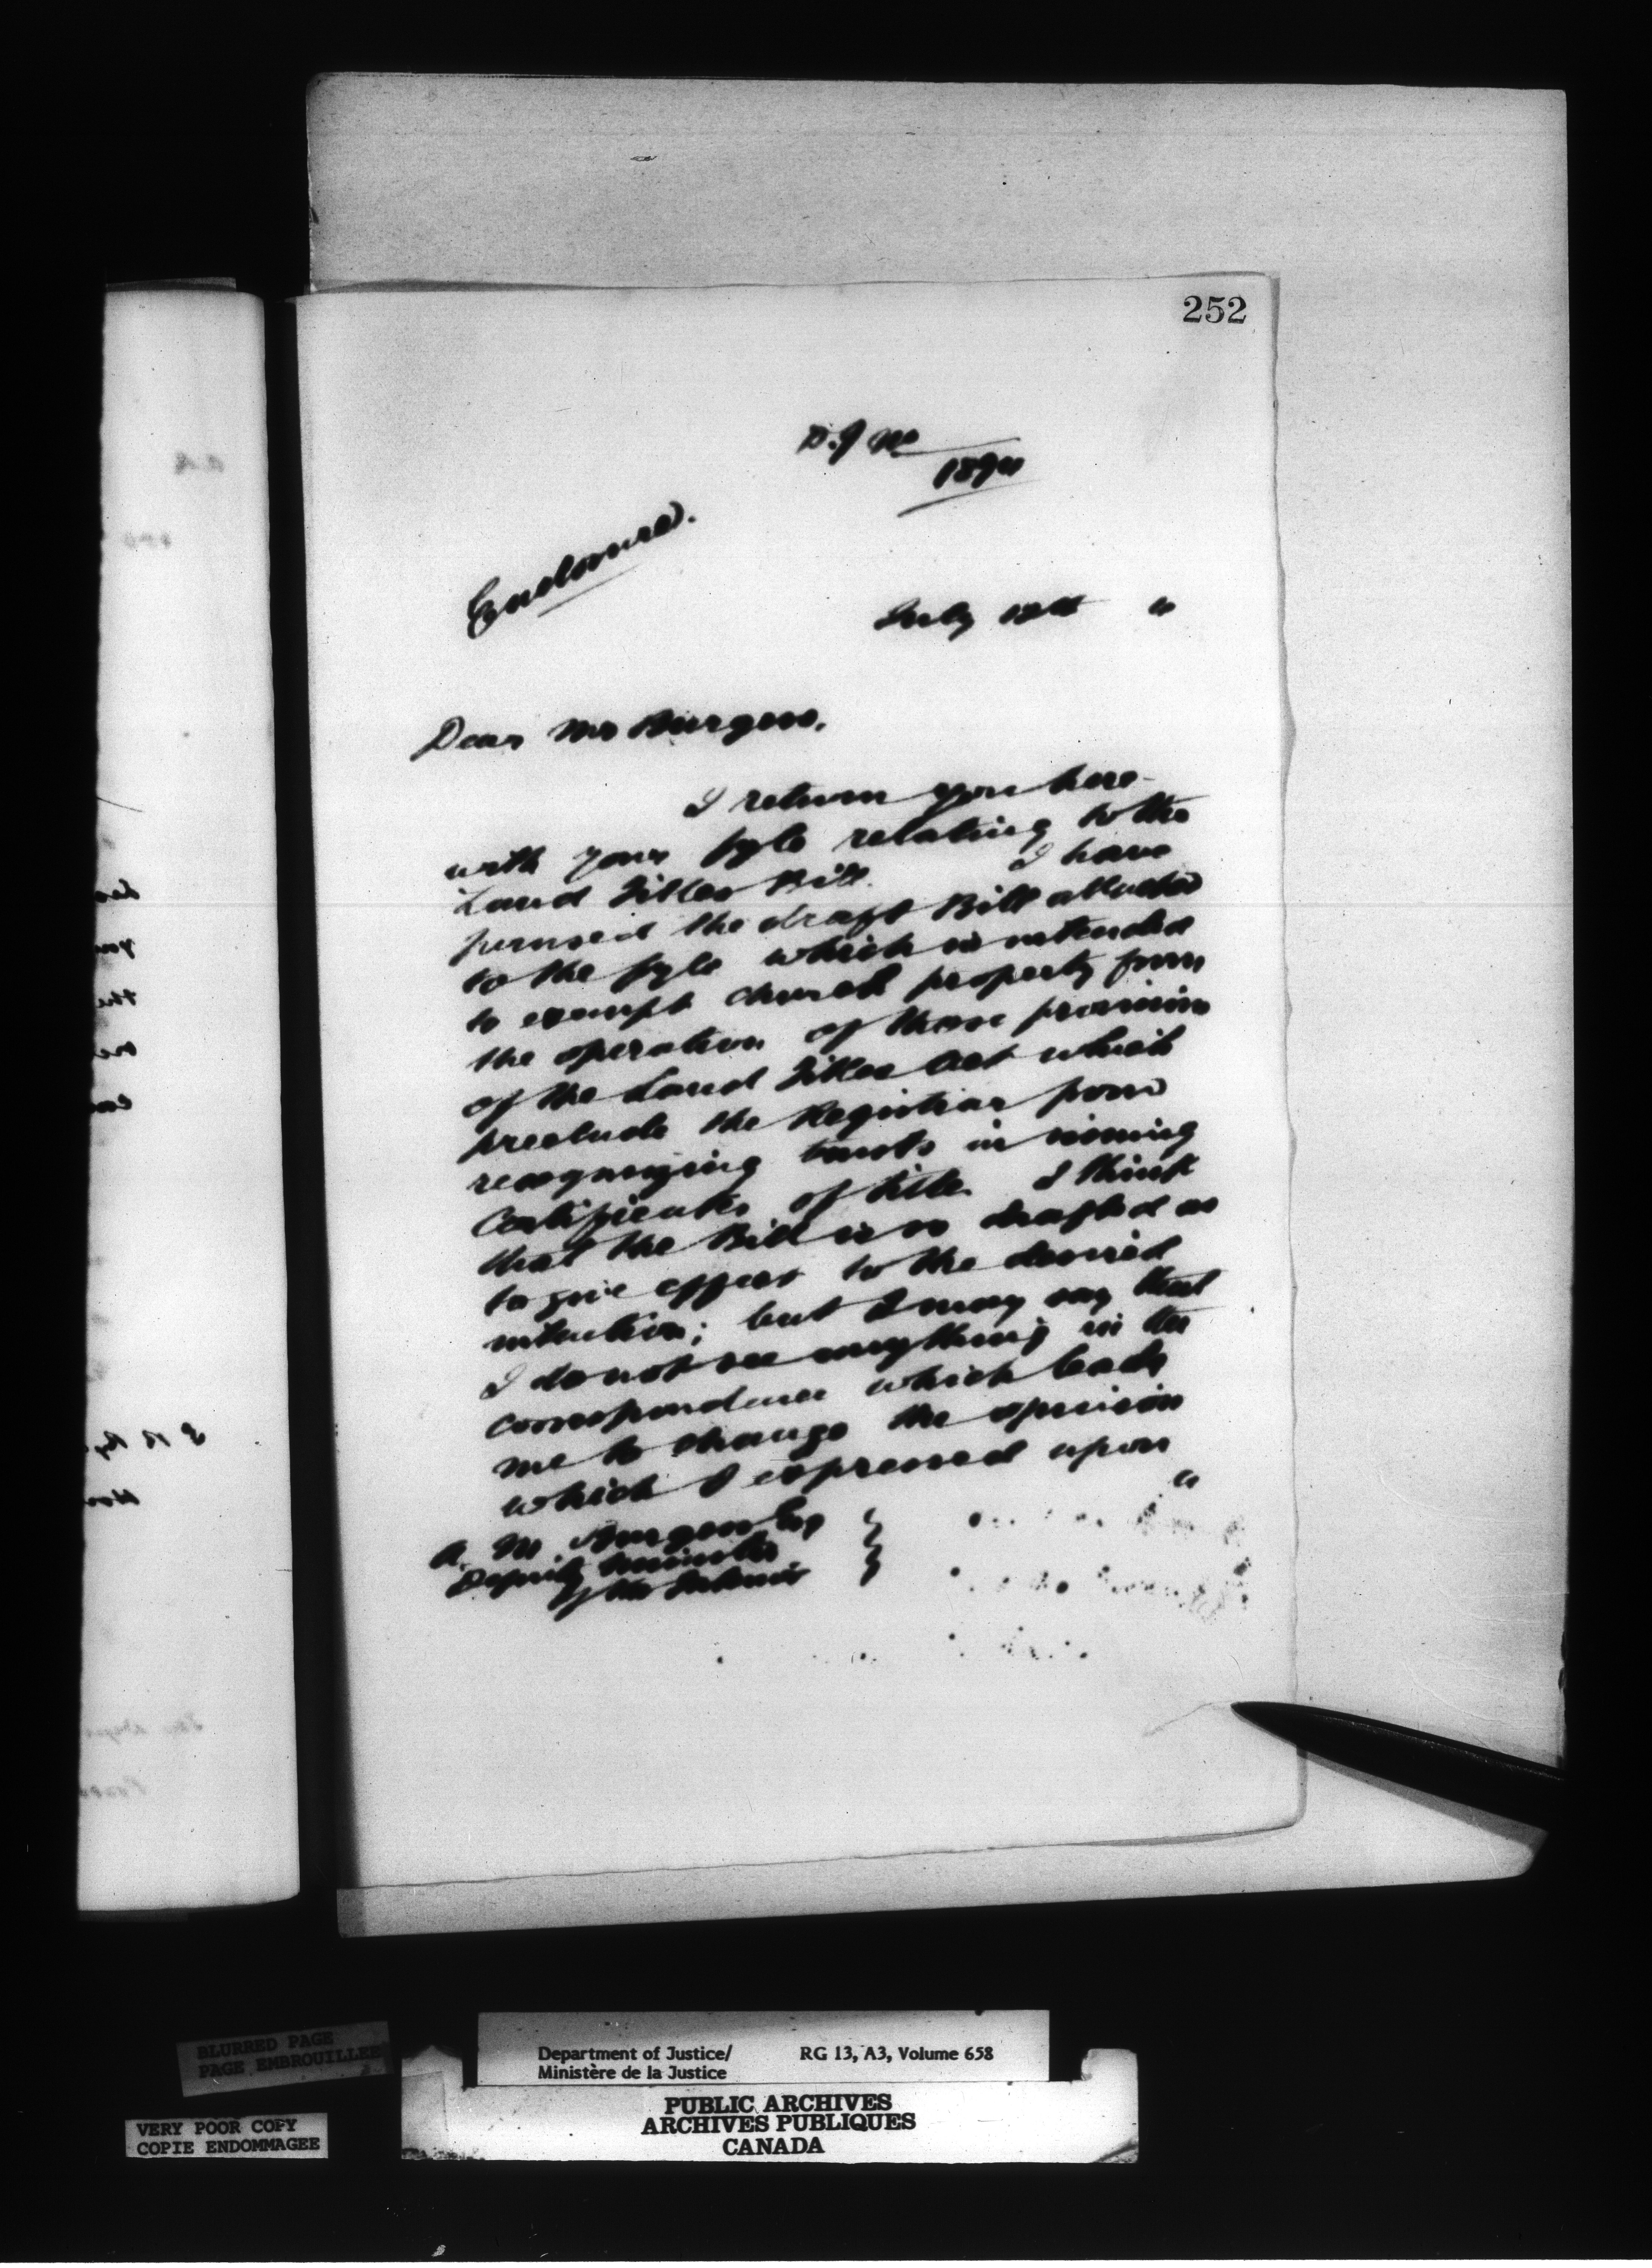 252
D.J No
1894
Enclosure.
July 12th "
Dear Mr Burgess,
I return you here-
with your fyle relating to the
Land Titles Bill. I have
perused the draft Bill attached
to the fyle which is intended
to exempt church property from
the operation of those provisions
of the Land Titles Act which
preclude the Registrar from
recognizing trusts in issuing
Certificates of title. I think
that the Bill is so drafted as
to give effect to the desired
intention; but I may say that
I do not see anything in the
correspondence which leads
me to change the opinion
which I expressed upon
"
A. M Burgess Esq
Deputy Minister
of the Interior
BLURRED PAGE
PAGE EMBROUILLEE
VERY POOR COPY
COPIE ENDOMMAGEE
Department of Justice/ RG 13, A3, Volume 658
Ministère de la Justice
PUBLIC ARCHIVES
ARCHIVES PUBLIQUES
CANADA